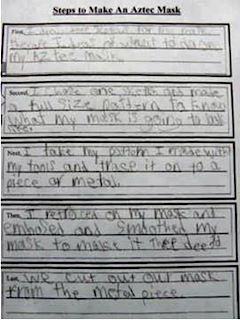 Steps to Make An Aztec Mask
First, I
sketch for
ideas of what to do on
my Aztec mask.
Second, I chose one sketch and made
a full size pattern to know
what my mask is going to look
Next, I take my pattern I made with
my tools and trace it on to a
piece of metal.
Then, I retraced on my mask and
embosed and smoothed my
mask to make it
Last, we cut out our mask
from the metal piece.